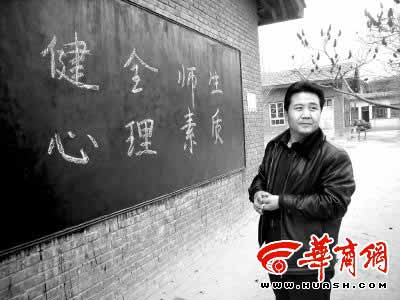 健全师生
心理素质
华商网
WWW.HUASH.COM